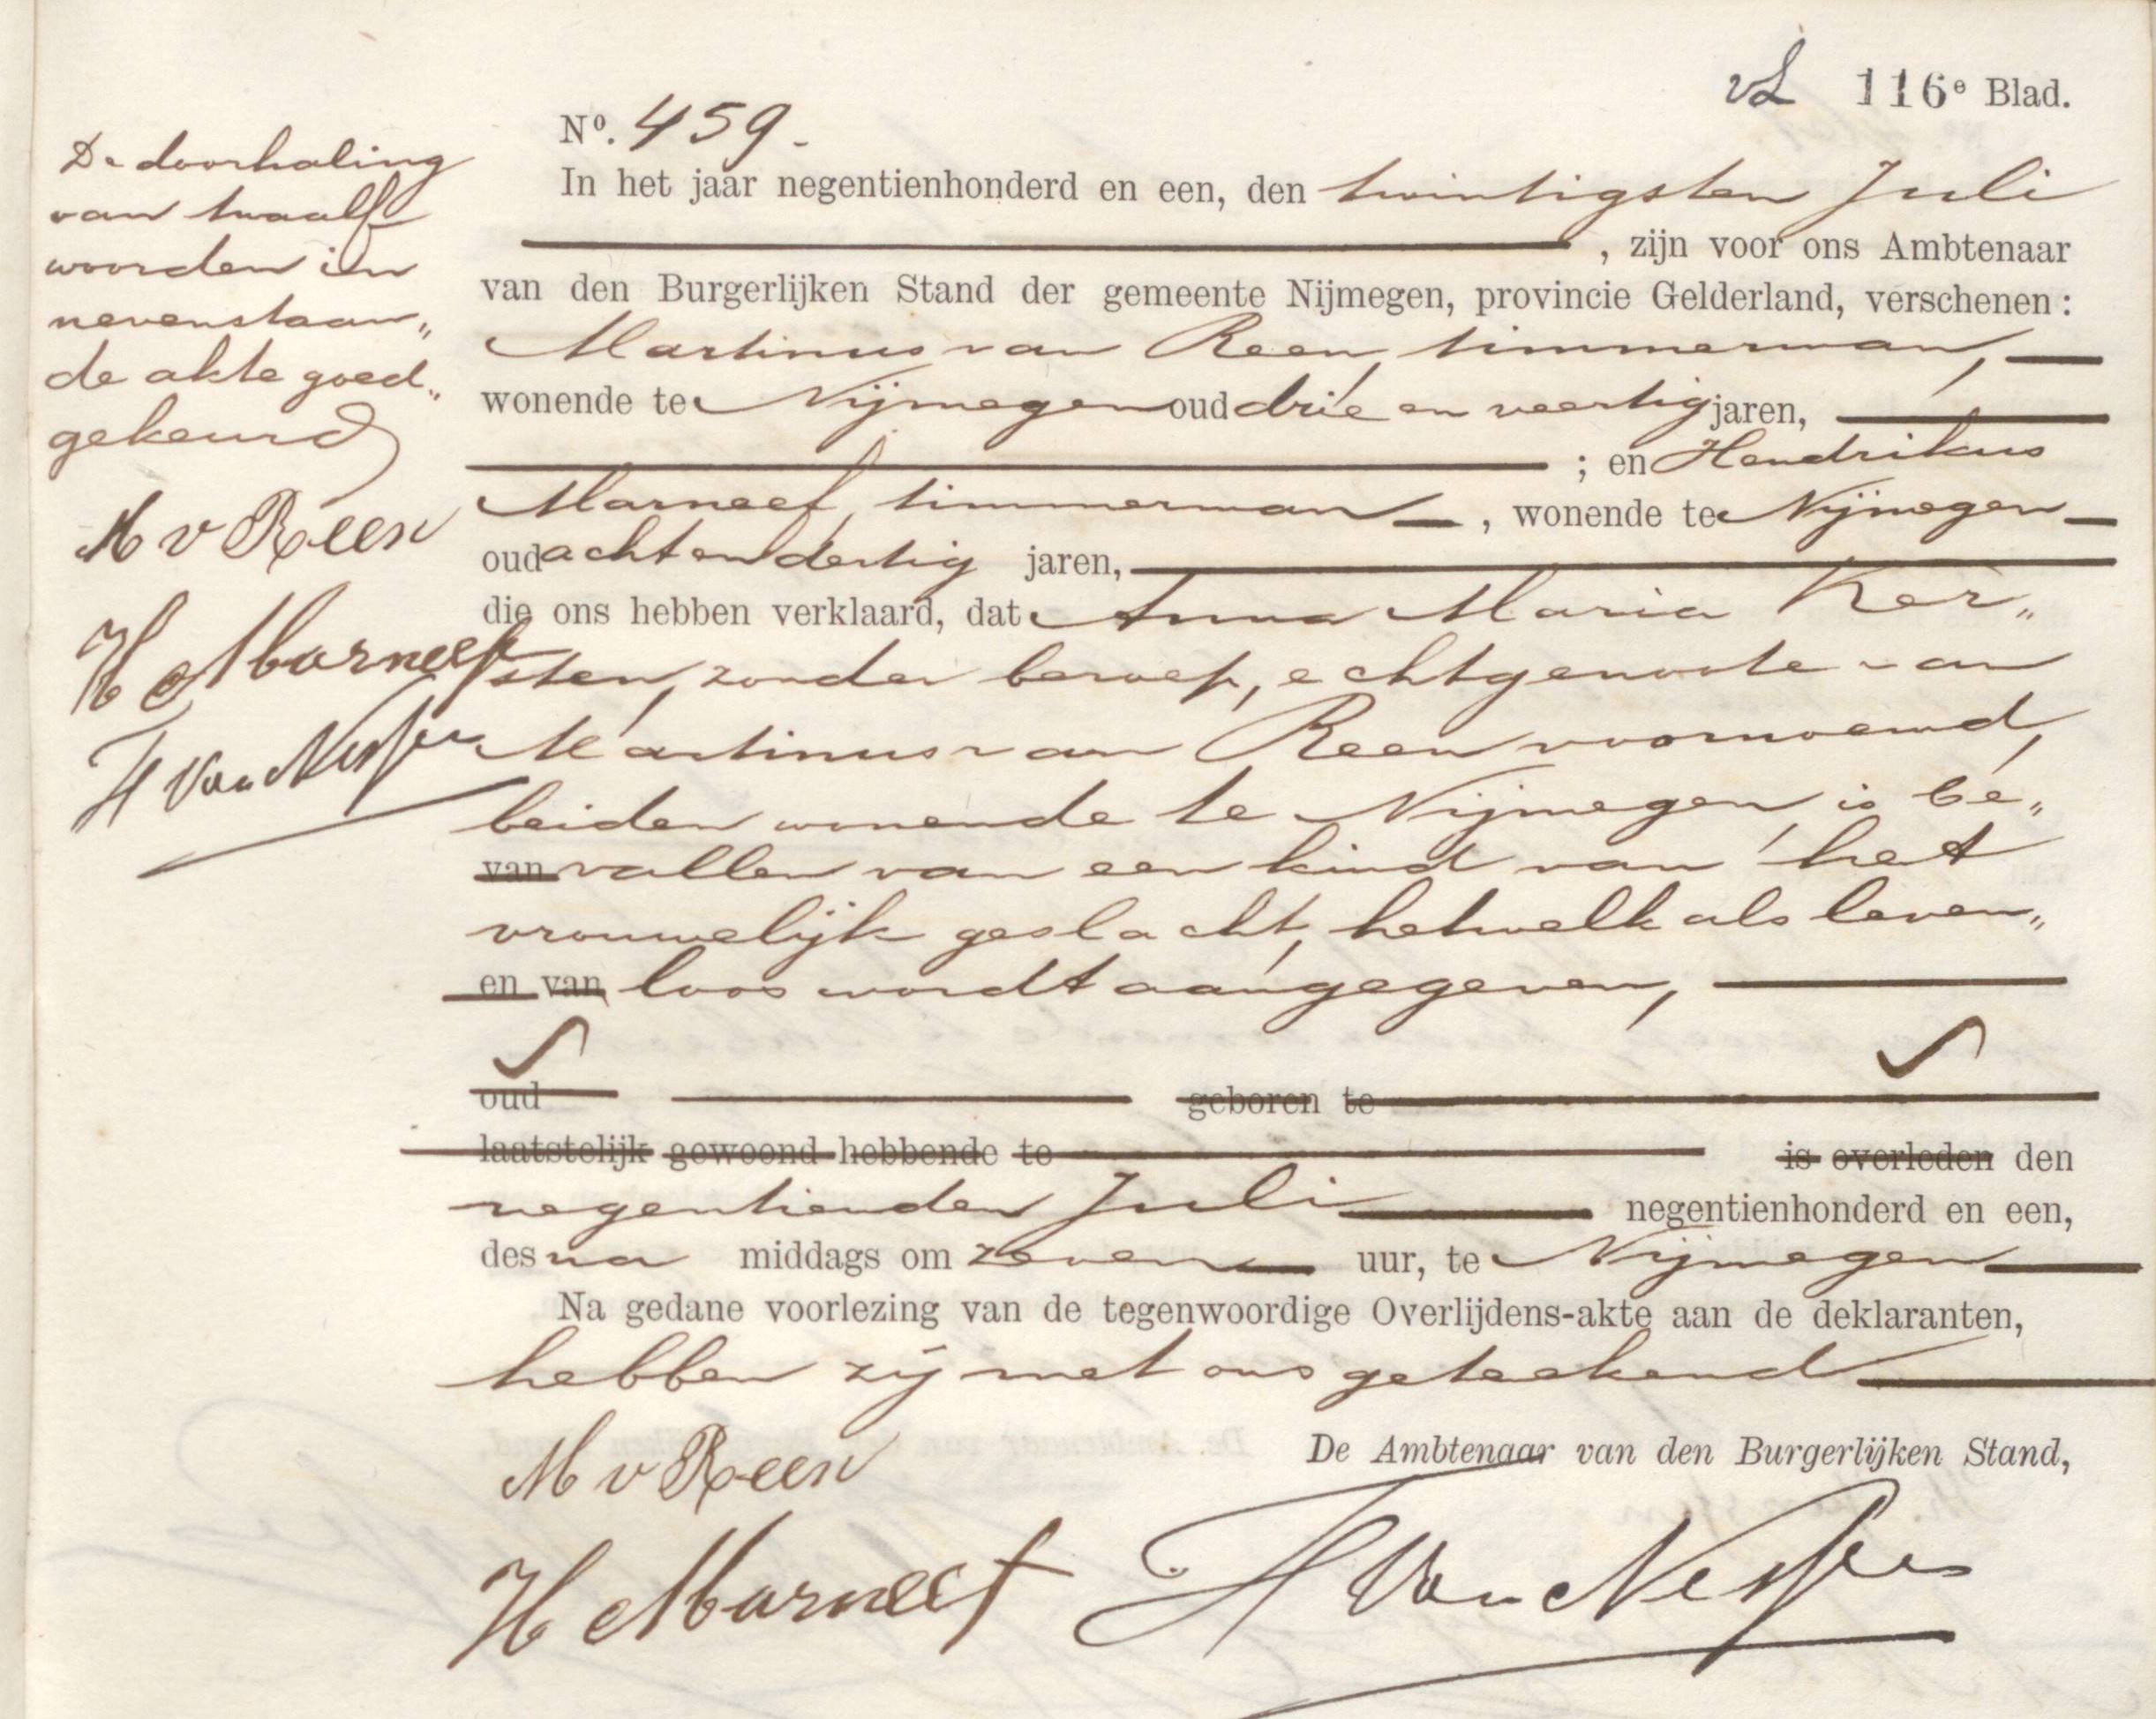 vL 116e Blad.
No. 459.
In het jaar negentienhonderd en een, den twintigsten Juli
, zijn voor ons Ambtenaar
van den Burgerlijken Stand der gemeente Nijmegen, provincie Gelderland, verschenen:
Martinus van Reen, timmerman,
wonende te Nijmegen oud drie en veertig jaren,
; en Hendrikus
Marneef, timmerman, wonende te Nijmegen
oud acht en dertig jaren,
die ons hebben verklaard, dat Anna Maria Ker„
sten, zonder beroep, echtgenoote van
Martinus van Reen voornoemd,
beiden wonende te Nijmegen, is be„
van vallen van een kind van het
vrouwelijk geslacht, hetwelk als leven„
en van loos wordt aangegeven,
oud geboren te
laatstelijk gewoond hebbende te is overleden den
negentienden Juli negentienhonderd en een,
des na middags om zeven uur, te Nijmegen
Na gedane voorlezing van de tegenwoordige Overlijdens-akte aan de deklaranten,
hebben zij met ons geteekend
De Ambtenaar van den Burgerlijken Stand,
M v Reen
H Marneef
De doorhaling
van twaalf
woorden in
nevenstaan„
de akte goed„
gekeurd
M v Reen
H Marneef